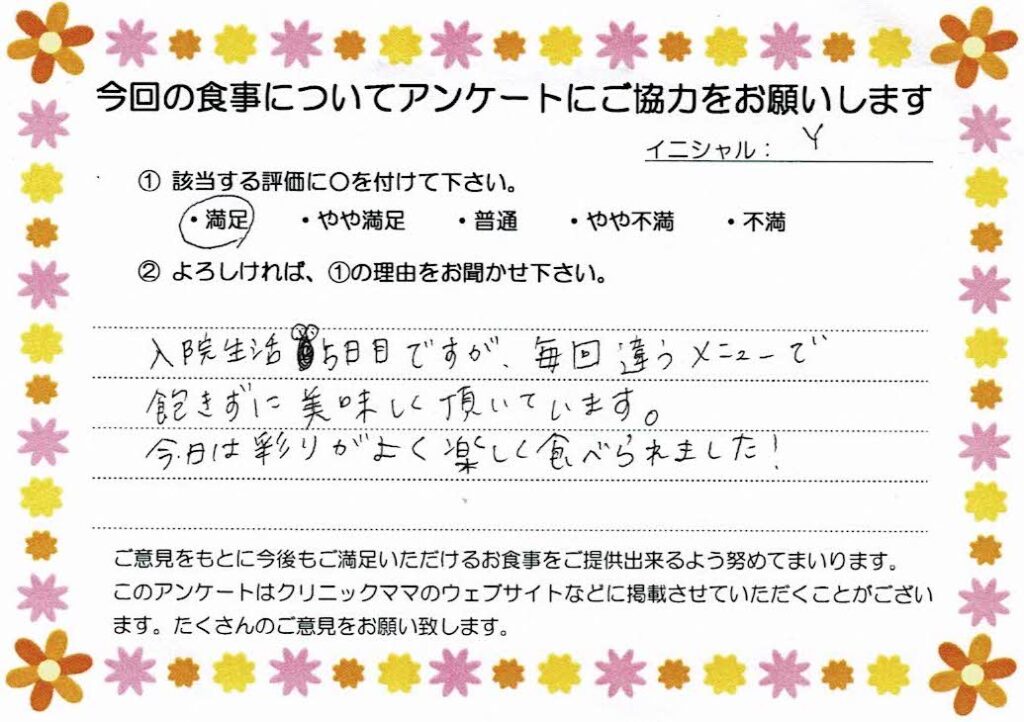 今回の食事についてアンケートにご協力をお願いします
イニシャル： Y
① 該当する評価に〇を付けて下さい。
・満足 ・やや満足 ・普通 ・やや不満 ・不満
② よろしければ、①の理由をお聞かせ下さい。
入院生活5日目ですが、毎回違うメニューで
飽きずに美味しく頂いています。
今日は彩りがよく楽しく食べられました！
ご意見をもとに今後もご満足いただけるお食事をご提供出来るよう努めてまいります。
このアンケートはクリニックママのウェブサイトなどに掲載させていただくことがござい
ます。たくさんのご意見をお願い致します。